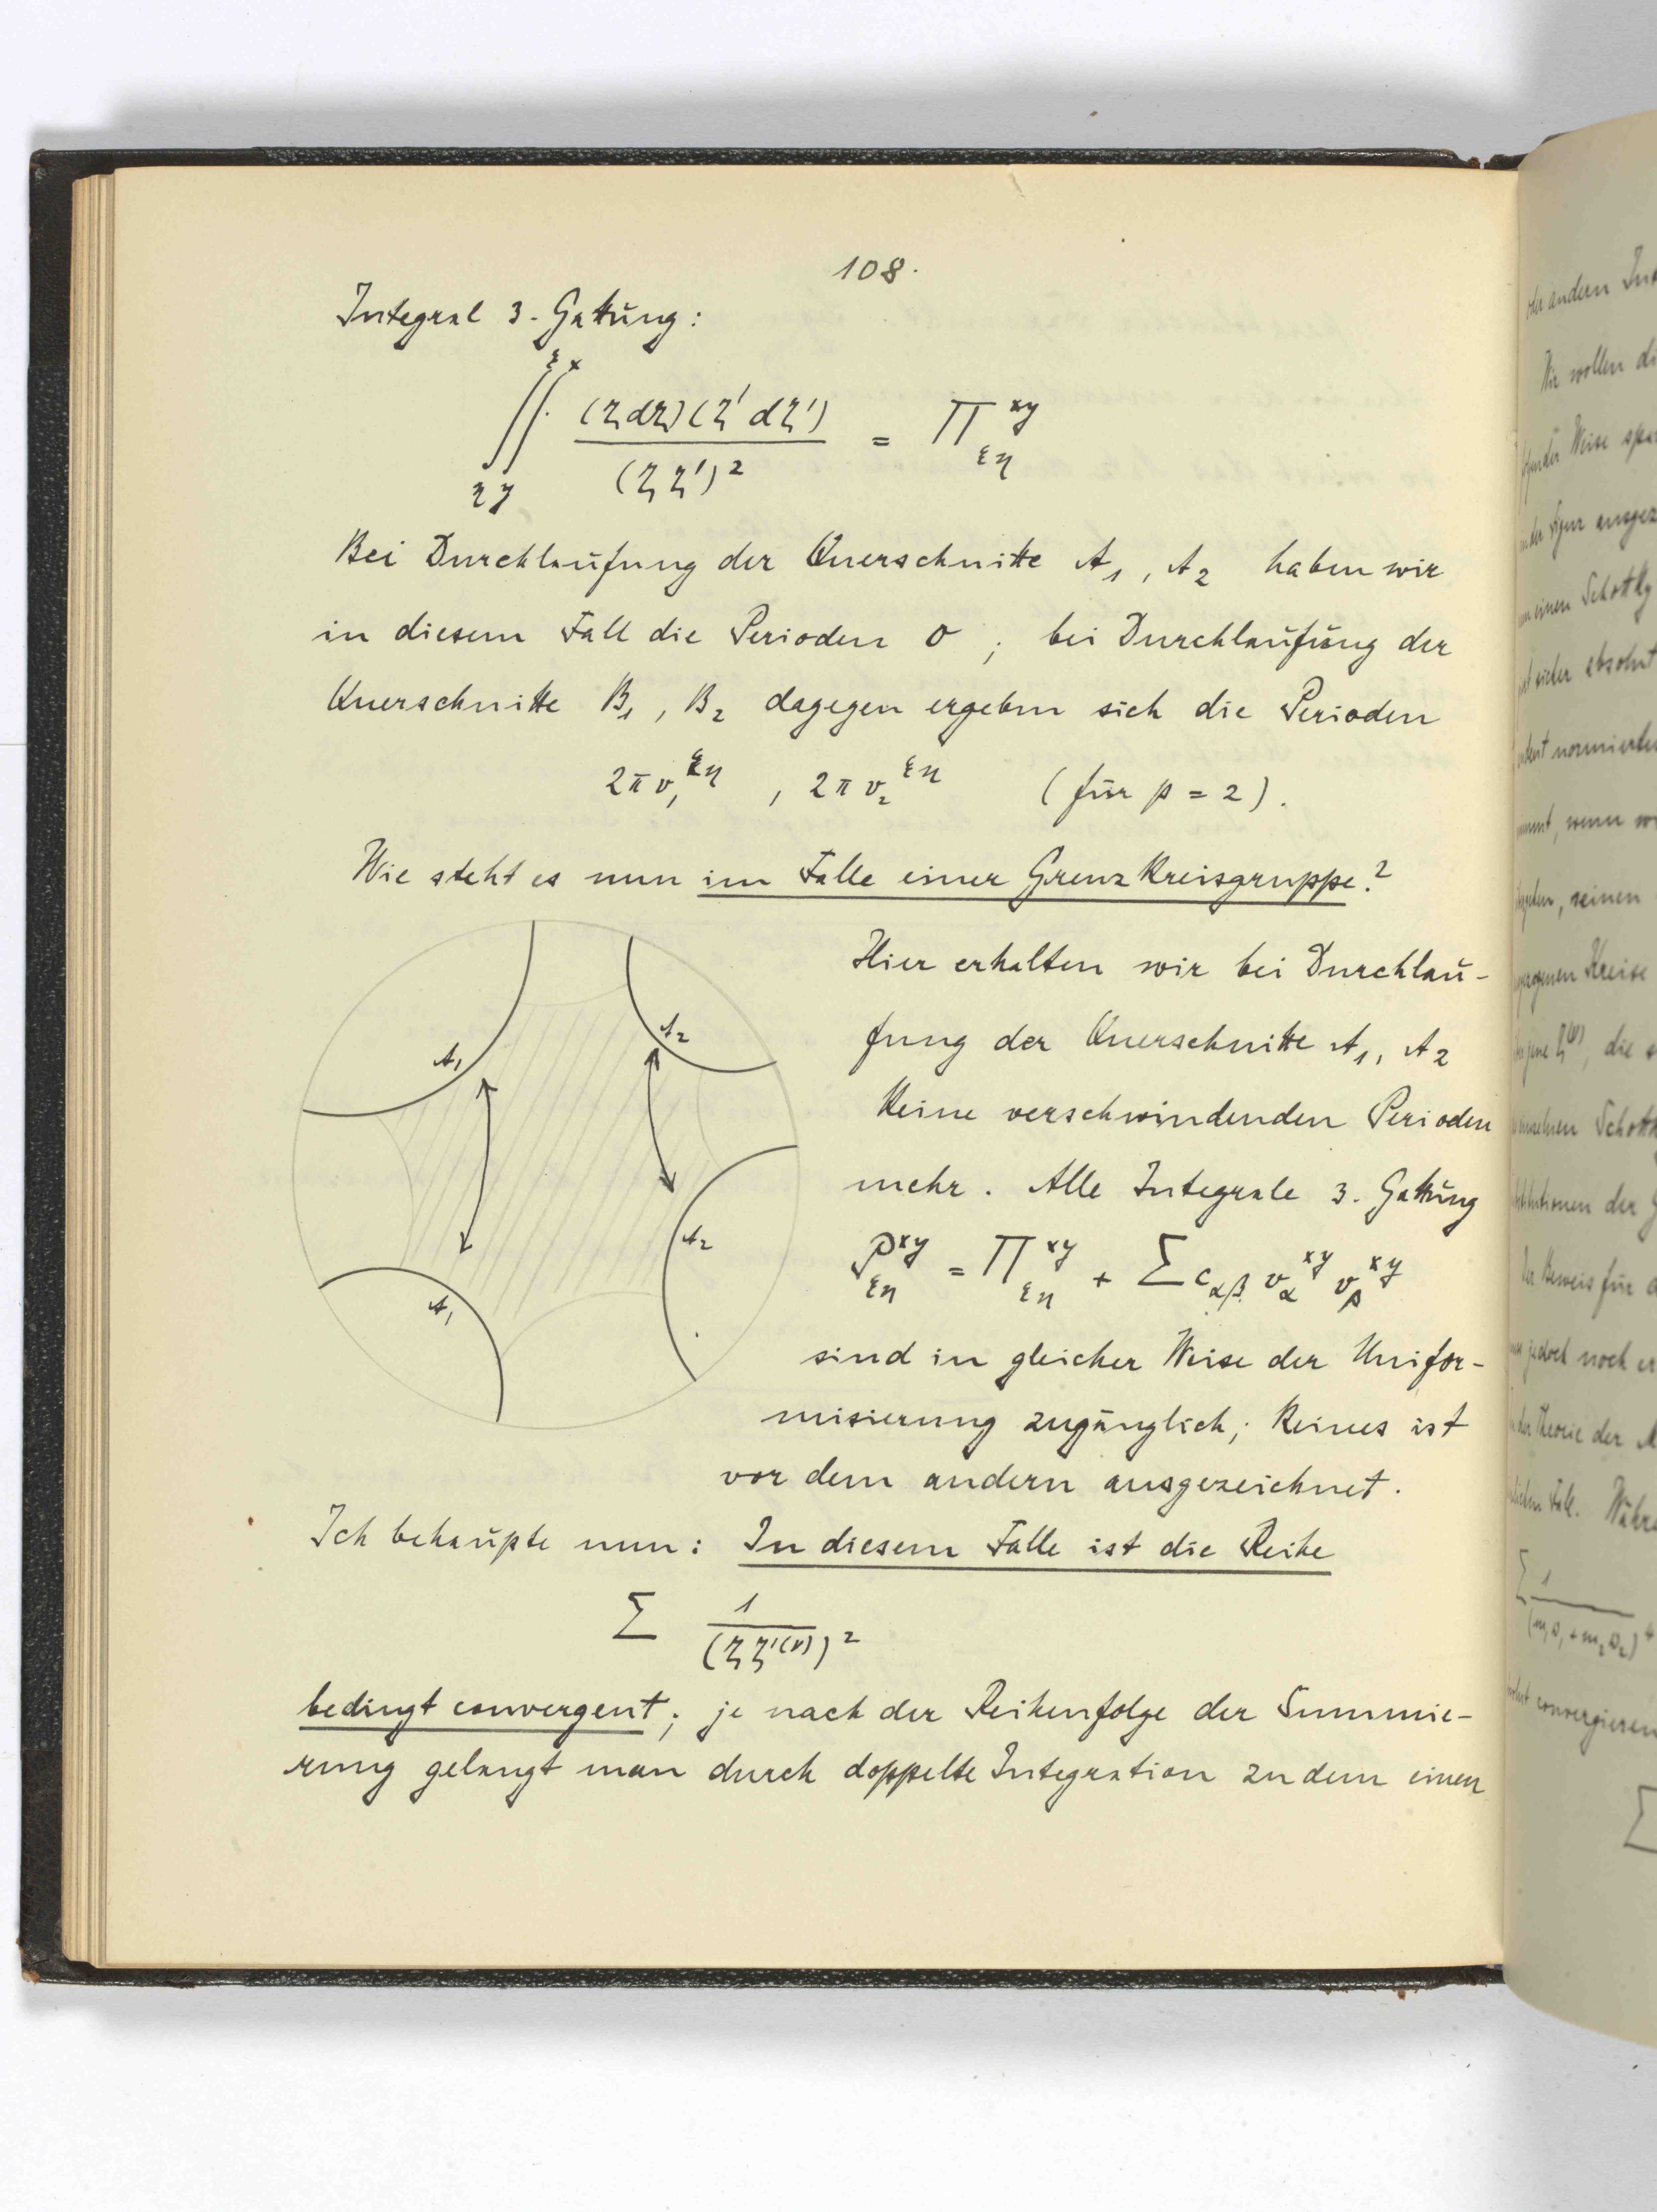 108.
Integral 3. Gattung:
∬ (ζdζ)(ζ'dζ') / (ζζ')² = Π^{xy}_{ξη}
Bei Durchlaufung der Querschnitte A₁, A₂ haben wir
in diesem Fall die Perioden 0; bei Durchlaufung der
Querschnitte B₁, B₂ dagegen ergeben sich die Perioden
2πv₁^{ξη}, 2πv₂^{ξη} (für p = 2).
Wie steht es nun im Falle einer Grenzkreisgruppe?
A₁
A₂
A₂
A₁
Hier erhalten wir bei Durchlau-
fung der Querschnitte A₁, A₂
keine verschwindenden Perioden
mehr. Alle Integrale 3. Gattung
P^{xy}_{ξη} = Π^{xy}_{ξη} + Σ c_{αβ} v_α^{xy} v_β^{xy}
sind in gleicher Weise der Unifor-
misierung zugänglich; keines ist
vor dem andern ausgezeichnet.
Ich behaupte nun: In diesem Falle ist die Reihe
Σ 1 / (ζζ'^{(ν)})²
bedingt convergent; je nach der Reihenfolge der Summie-
rung gelangt man durch doppelte Integration zu dem einen
oder andern
Wir wollen
Weise
Figur
einen Schottky
wenn
seinen
Kreise
jene ζ^{(ν)}, die
Schott
der
Der Beweis für
jedoch noch
Theorie der
Fall.
Σ 1 / (m₁ω₁+m₂ω₂)
convergieren
Σ